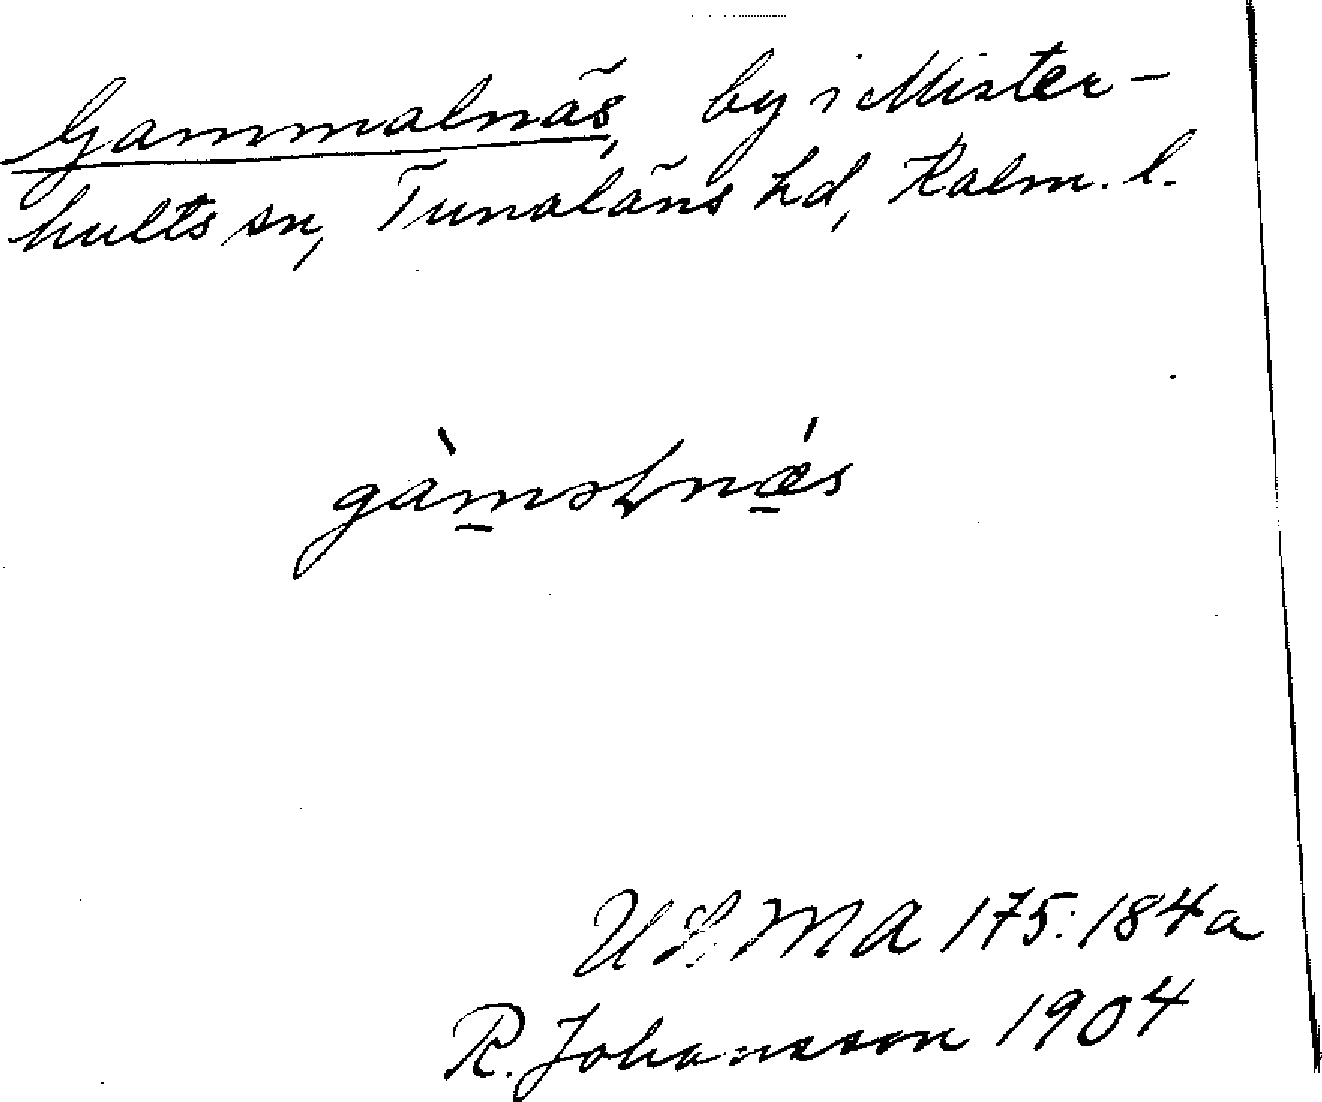 Gammalnäs, by i Mister-
hults sn, Tunaläns hd, Kalm. l.
gàmaɫnǽs
ULMA 175:184a
R. Johansson 1904